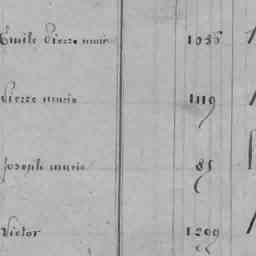 Emile Pierre marie 1036
Pierre marie 1119
Joseph marie 85
Victor 1200